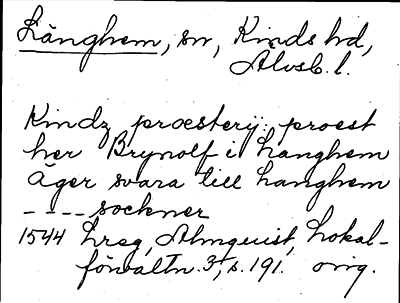 Länghem, sn, Kinds hd,
Älvsb. l.
Kindz præsterij: proest
her Brynolf i Langhem
Äger svara till hanghem
---- sockner
1544 hreg, Almquist, Lokal-
förvaltn. 3, s. 191. orig.